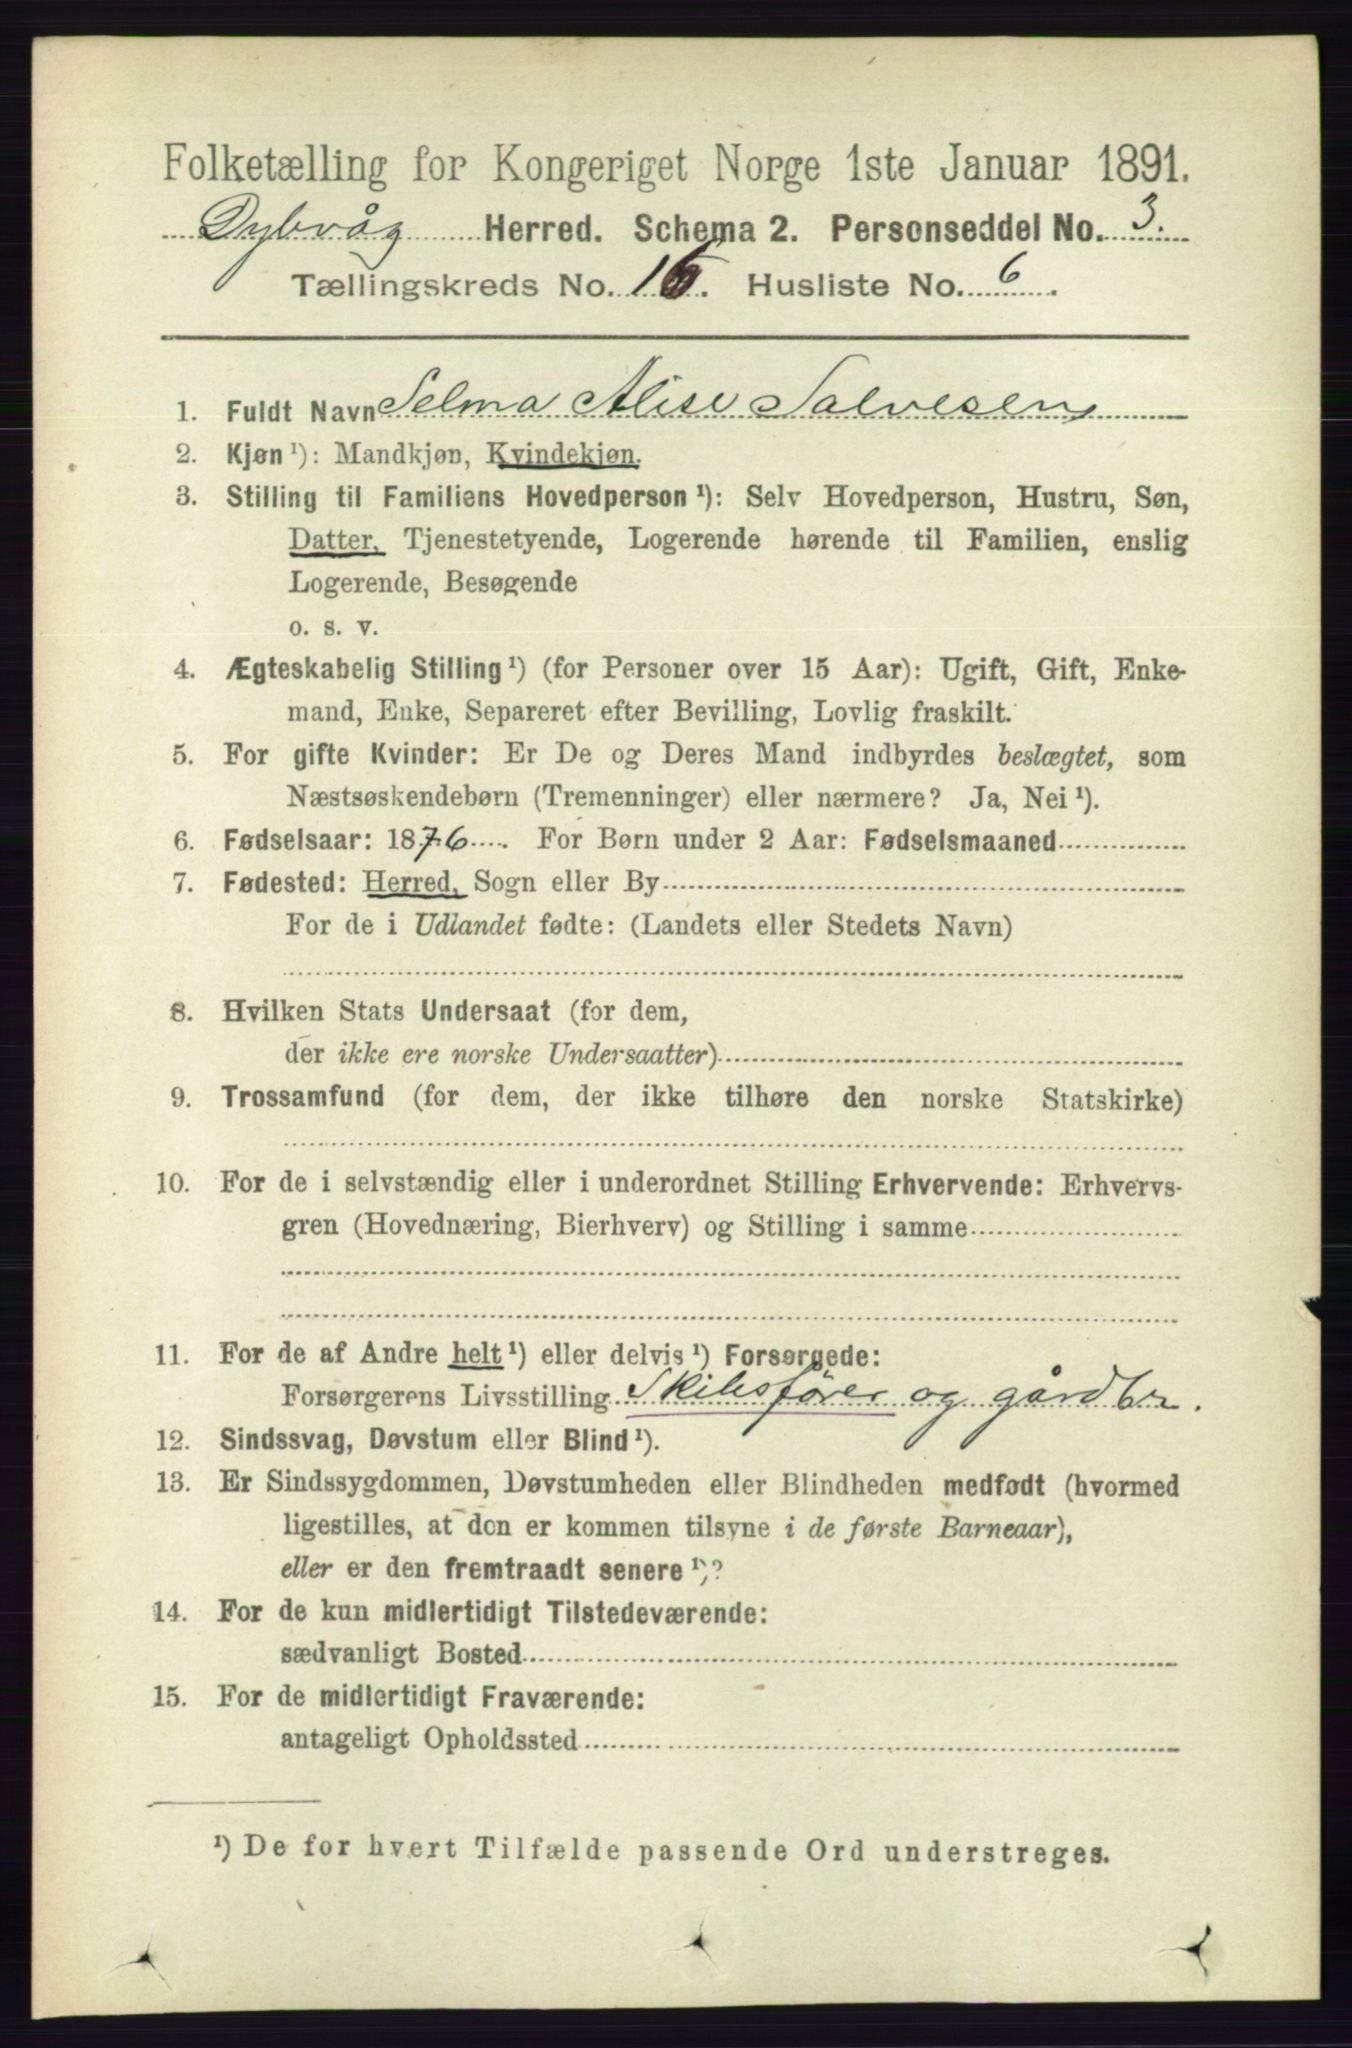 Folketælling for Kongeriget Norge 1ste Januar 1891.
Dybvåg Herred. Schema 2. Personseddel No. 3.
Tællingskreds No. 16. Husliste No. 6.
1. Fuldt Navn Selma Alise Salvesen
2. Kjøn ¹): Mandkjøn, Kvindekjøn.
3. Stilling til Familiens Hovedperson ¹): Selv Hovedperson, Hustru, Søn,
Datter, Tjenestetyende, Logerende hørende til Familien, enslig
Logerende, Besøgende
o. s. v.
4. Ægteskabelig Stilling ¹) (for Personer over 15 Aar): Ugift, Gift, Enke-
mand, Enke, Separeret efter Bevilling, Lovlig fraskilt.
5. For gifte Kvinder: Er De og Deres Mand indbyrdes beslægtet, som
Næstsøskendebørn (Tremenninger) eller nærmere? Ja, Nei ¹).
6. Fødselsaar: 1876. For Børn under 2 Aar: Fødselsmaaned
7. Fødested: Herred, Sogn eller By
For de i Udlandet fødte: (Landets eller Stedets Navn)
8. Hvilken Stats Undersaat (for dem,
der ikke ere norske Undersaatter)
9. Trossamfund (for dem, der ikke tilhøre den norske Statskirke)
10. For de i selvstændig eller i underordnet Stilling Erhvervende: Erhvervs-
gren (Hovednæring, Bierhverv) og Stilling i samme
11. For de af Andre helt ¹) eller delvis ¹) Forsørgede:
Forsørgerens Livsstilling Skibsfører og gårdbr.
12. Sindssvag, Døvstum eller Blind ¹).
13. Er Sindssygdommen, Døvstumheden eller Blindheden medfødt (hvormed
ligestilles, at den er kommen tilsyne i de første Barneaar),
eller er den fremtraadt senere ¹)?
14. For de kun midlertidigt Tilstedeværende:
sædvanligt Bosted
15. For de midlertidigt Fraværende:
antageligt Opholdssted
¹) De for hvert Tilfælde passende Ord understreges.